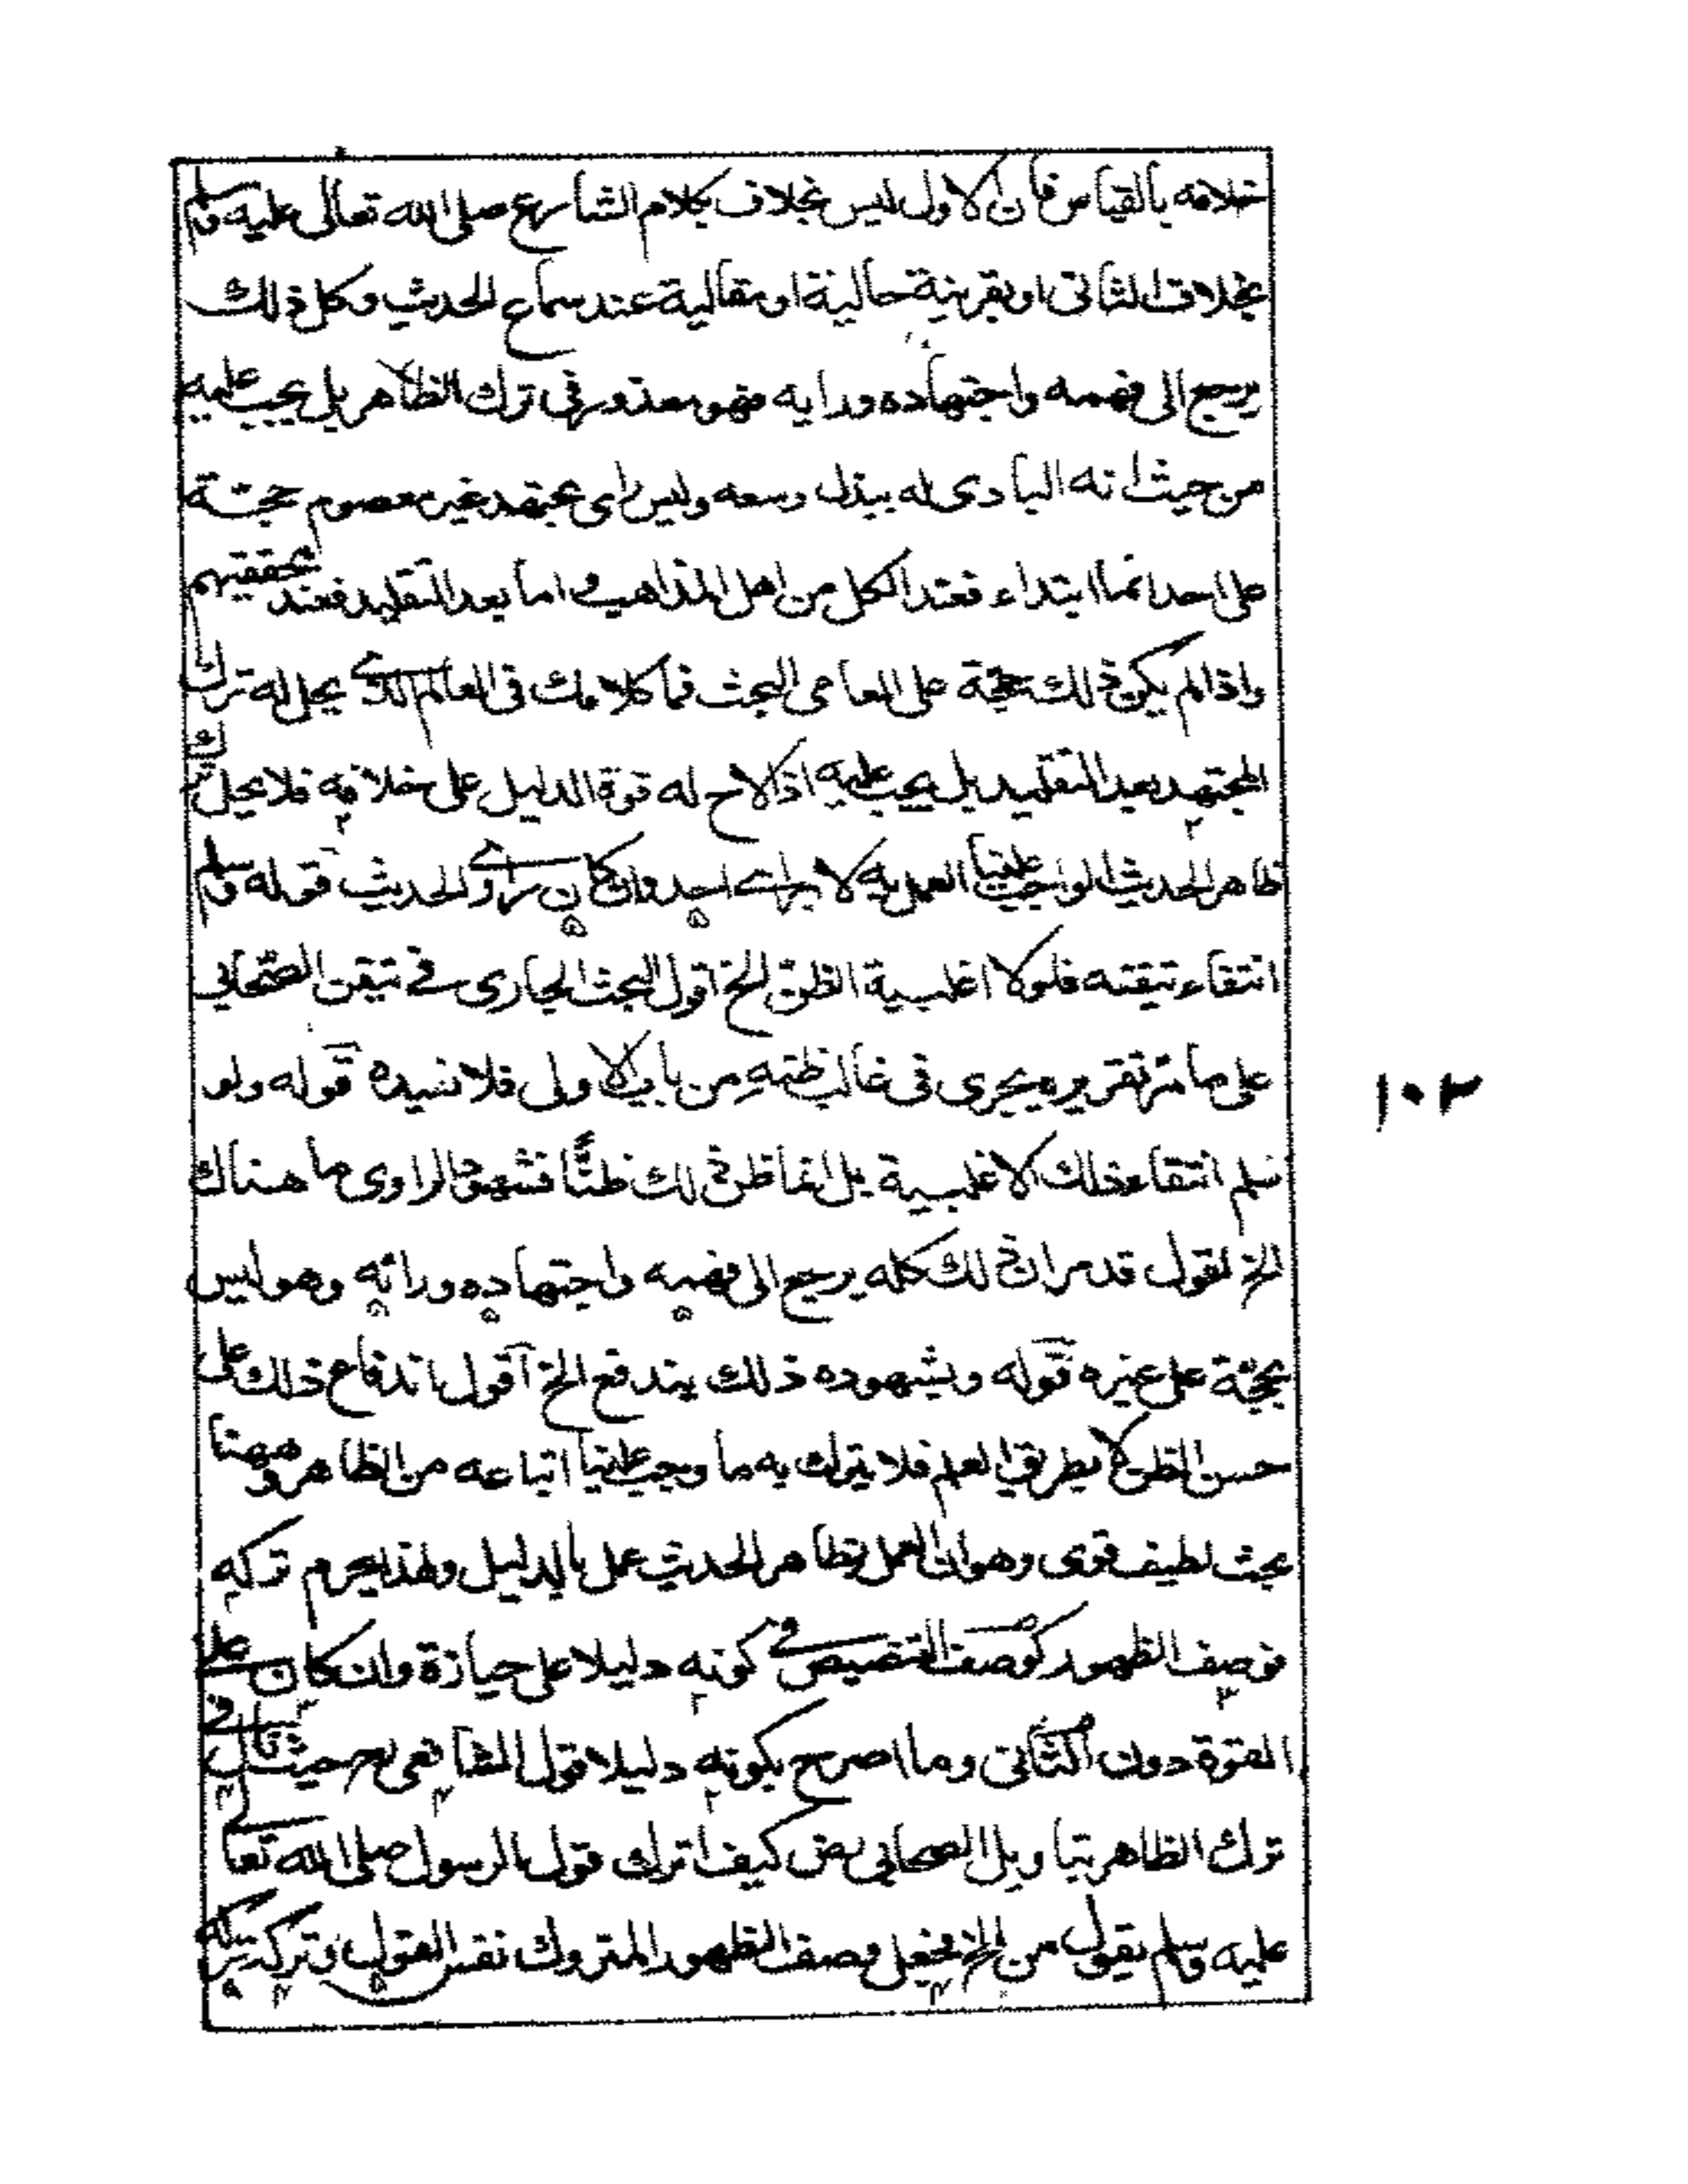 خلافه بالقياس فان الاول ليس بخلاف بكلام الشارع صلى الله تعالى عليه وسلم
بخلاف الثاني او بقرينة حالية او مقالية عند سماع الحديث وكل ذلك
يرجع الى فهمه واجتهاده ورايه فهو معذور في ترك الظاهر بل يجب عليه
من حيث انه البادى له ببذل وسعه وليس راى مجتهد غير معصوم حجة
على احد انما ابتداء فعند الكل من اهل المذاهب واما بعد التقليد فعند محققيهم
واذا لم يكن ذلك حجة على العامى البحث فما كلامك في العالم الذى يحل له ترك
المجتهد بعد التقليد بل يجب عليه اذا لاح له قوة الدليل على خلافه فلا يحل ترك
ظاهر الحديث الواجب علينا العمل به لا براى احد وان كان راوى الحديث قوله وسلم
انتفاء تيقنه فلولا اغلبية الظن الخ اقول البحث الجارى في تيقن الصحابي
على ما مر تقريره يجرى في غالب ظنه من باب الاولى فلا نسيده قوله ولو
نسلم انتفاء ذلك الاغلبية بل انما ظن ذلك ظنا فشهود الراوى ما هناك
الخ نقول قد مر ان ذلك كله يرجع الى فهمه واجتهاده ورائه وهو ليس
بحجة على غيره قوله وبشهوده ذلك يندفع الخ اقول اندفاع ذلك على
حسن الظن لا بطريق العلم فلا يترك به ما وجب علينا اتباعه من الظاهر وههنا
بحث لطيف قوى وهو ان العمل بظاهر الحديث عمل بالدليل ولهذا يحرم تركه
فوصف الظهور كوصف التخصيص في كونه دليلا على حيازة وان كان على
القوة دون الثاني وما اصرح بكونه دليلا قول الشافعى رح حيث قال في
ترك الظاهر بتاويل الصحابي رض كيف اترك قول الرسول صلى الله تعالى
عليه وسلم بقول من الخ فجعل وصف الظهور المتروك نفس القول وتركه تركه
١٠٢